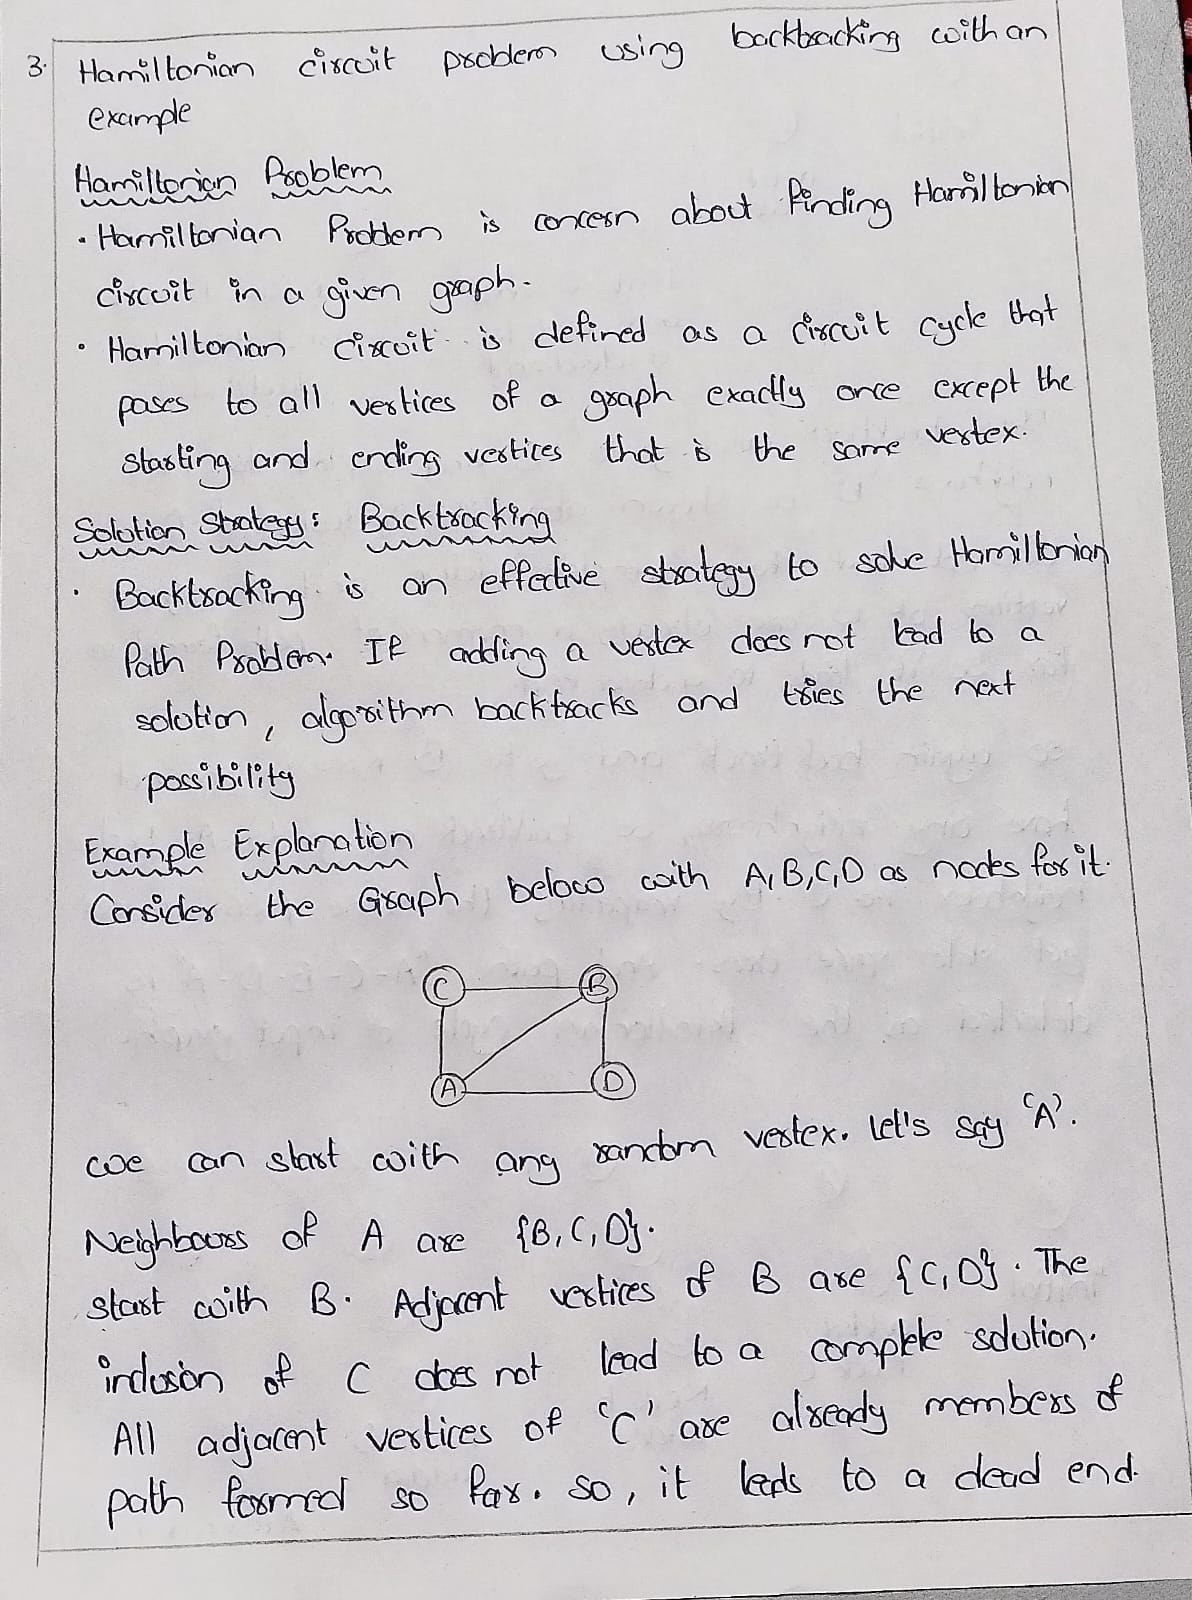 3. Hamiltonian circuit problem using backtracking with an
example
Hamiltonian Problem
• Hamiltonian Problem is concern about finding Hamiltonian
circuit in a given graph.
• Hamiltonian circuit is defined as a circuit cycle that
pases to all vertices of a graph exactly once except the
starting and ending vertices that is the same vertex.
Solution Strategy: Backtracking
• Backtracking is an effective strategy to solve Hamiltonian
Path Problem. If adding a vertex does not lead to a
solution, algorithm backtracks and tries the next
possibility
Example Explanation
Consider the Graph below with A,B,C,D as nodes for it.
C B
A D
we can start with any random vertex. Let's say 'A'.
Neighbours of A are {B,C,D}.
start with B. Adjacent vertices of B are {C,D}. The
inclusion of C does not lead to a complete solution.
All adjacent vertices of 'C' are already members of
path formed so far. so, it leads to a dead end.